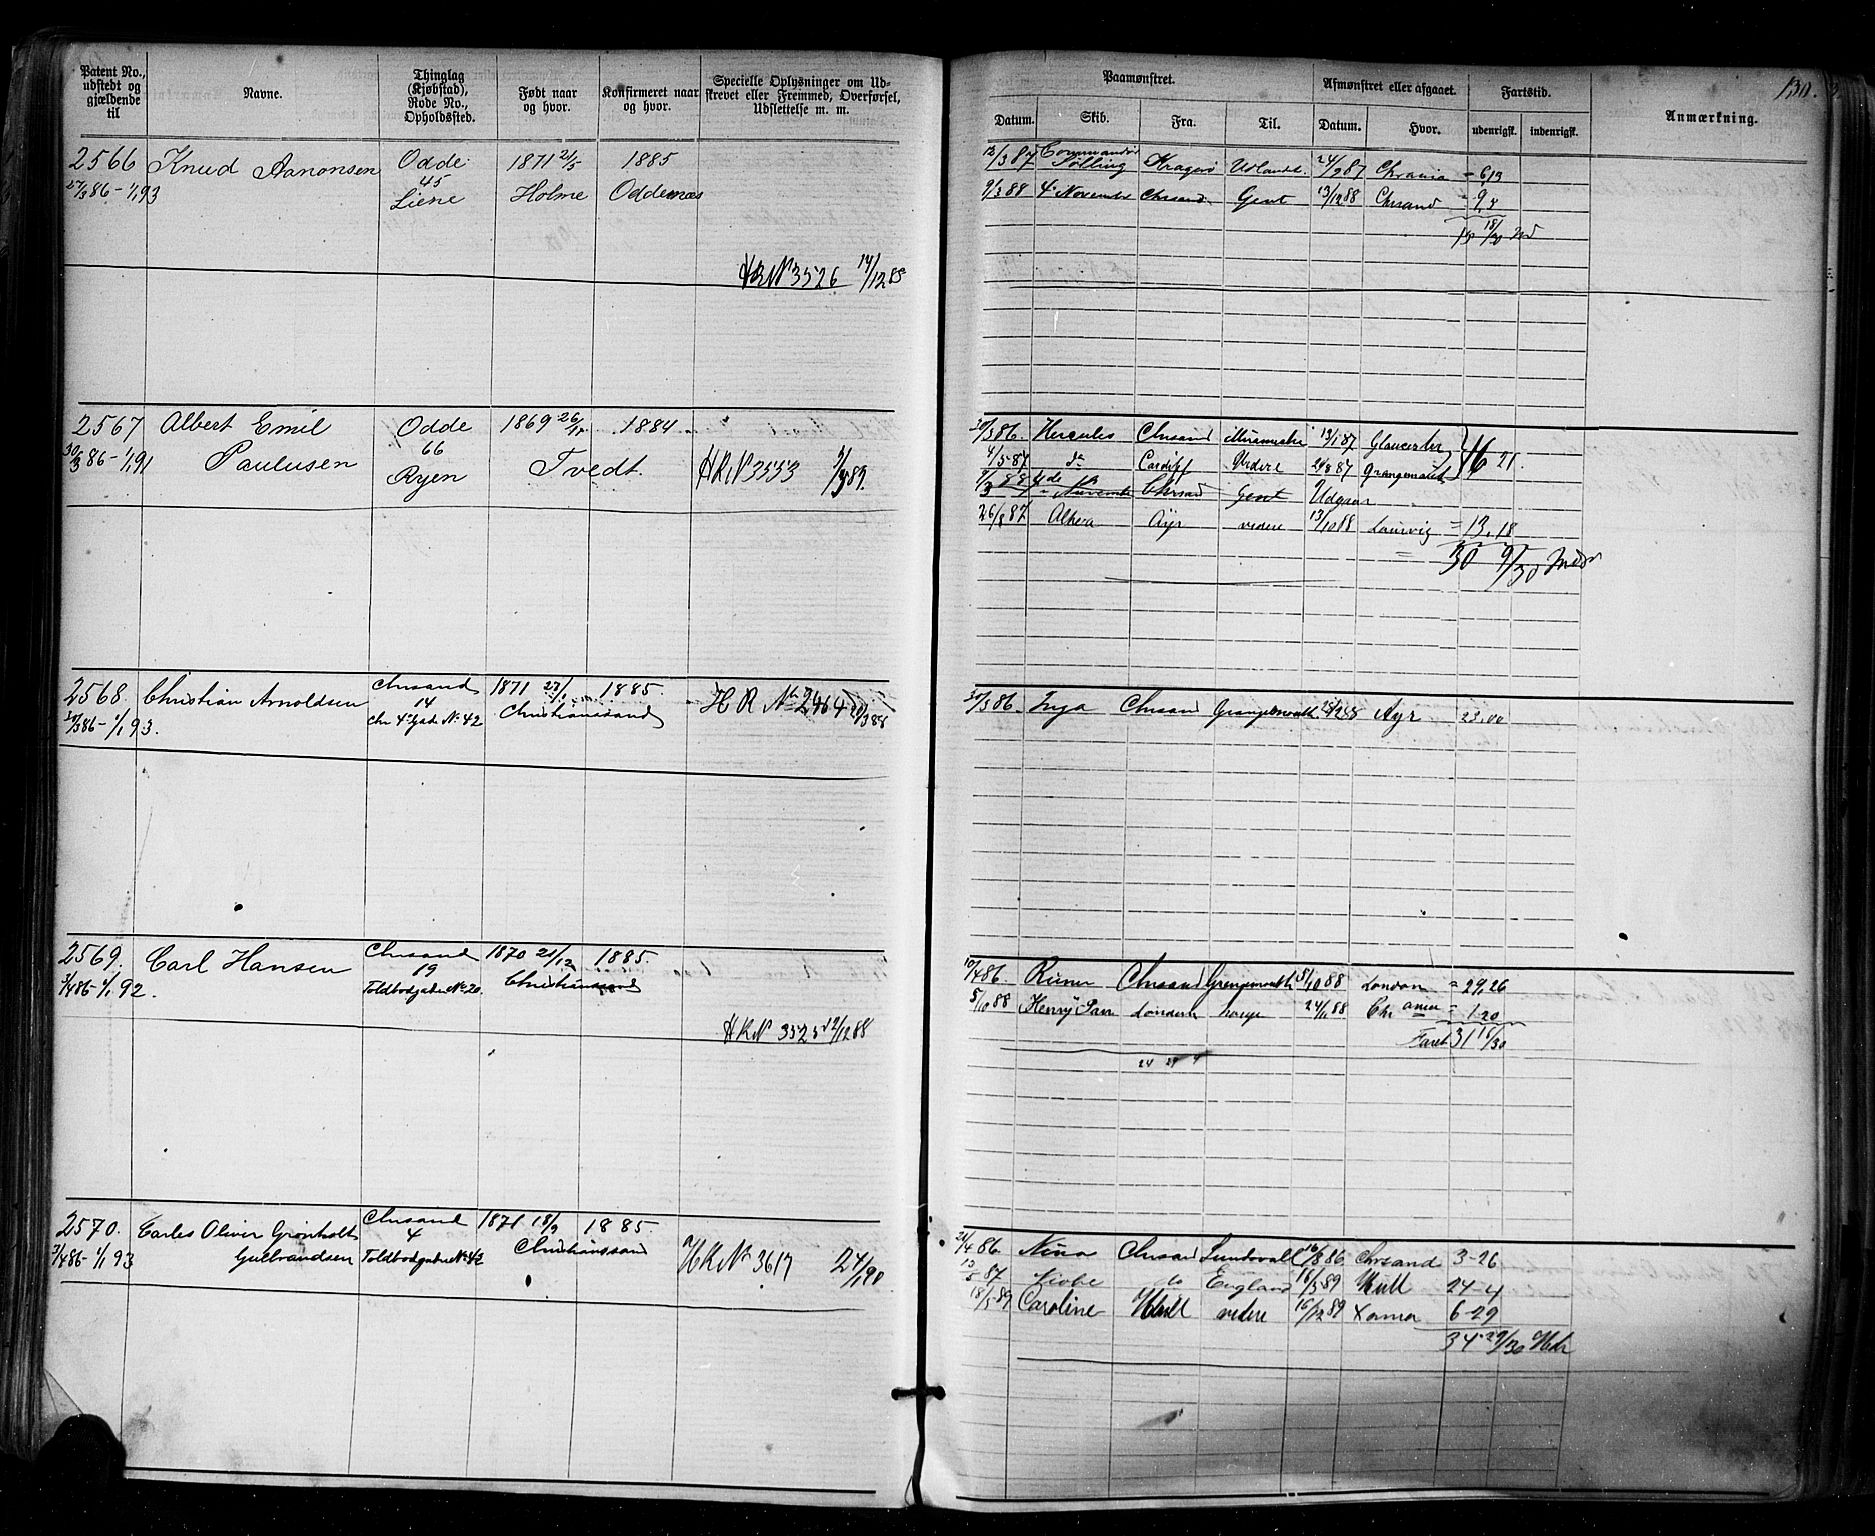 130.
Patent No., udstedt og gjældende til
Navne.
Thinglag (Kjøbstad), Rode No., Opholdssted.
Født naar og hvor.
Konfirmeret naar og hvor.
Specielle Oplysninger om Udskrevet eller Fremmed, Overførsel, Udslettelse m. m.
Paamønstret.
Afmønstret eller afgaaet.
Fartstid.
Anmærkning.
Datum. Skib. Fra. Til. Datum. Hvor. udenrigsk. indenrigsk.
2566 Knud Aanonsen Odde 1871 21/5 1885
27/3 86 - 1/1 93 45 Holme Oddernæs
Liene
HRN 3526 14/12 88
12/3 87 Commandør Sølling Kragerø Udlandet 24/9 87 Chrania = 6,13
9/3 88 4de November Chrsand Gent 13/12 88 Chrsand = 9,5
18/30 Md
2567 Albert Emil Odde 1869 26/10 1884
30/3 86 - 1/1 91 Paulusen 66 Tvedt HRN 3553 89.
Ryen
30/3 86. Hercules Chrsand Miramichi 13/1 87 Gloucester
4/5 87 do Cardiff videre 87 Grangemouth 16 21.
4de November Chrsand Gent Udgaar
26/8 87 Athera Ayr videre 13/10 88 Laurvig = 13,18
= 30 9/30 Mdr
2568. Christian Arnoldsen Chrsand 1871 27/1 1885. HR No 2464 20/3 88
30/3 86 - 1/1 93. 14 Christianssand
4 Gade No 42
30/3 86. Inga Chrsand Grangemouth Ayr 23.00
2569. Carl Hansen Chrsand 1870 21/12 1885.
1/4 86 - 1/1 92. 19 Christianssand
Toldbodgaden No 20.
HRN 3525 12/12 88
10/4 86. Runer Chrsand Grangemouth 5/10 88 London = 29,26
5/10 88 Henry London 24/11 88 Chrania = 1.20
31 16/30
24 29 4
2570. Carles Oliver Grønholt Chrsand 1871 18/9 1885.
2/4 86 - 1/1 93 Gulbrandsen 4 Christianssand HRNo 3617 24/1 90
Toldbodgaden No 42
21/4 86. Nina Chrsand Sundsvall 16/8 86 Chrsand 3-26
12/5 87 Niobe do England 16/5 89 Hull 24-4
18/5 89 Caroline Hull videre 16/12 89 6-29
34 29/30 Mdr